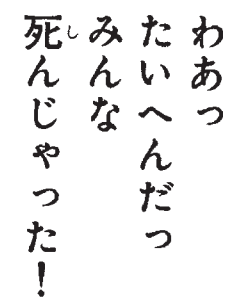 わあっ
たいへんだっ
みんな
死んじゃった!